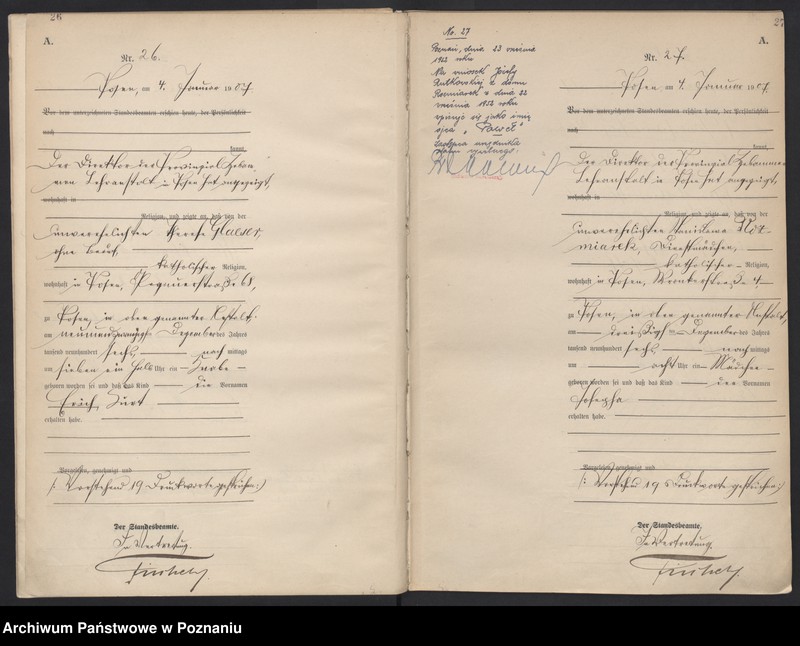 26
A.
Nr. 26.
Posen, am 4. Januar 1907.
Vor dem unterzeichneten Standesbeamten erschien heute, der Persönlichkeit
nach
kannt,
Der Direktor der Provinzial Hebam-
men Lehranstalt in Posen hat angezeigt,
wohnhaft in
Religion, und zeigte an, daß von der
unverehelichten Therese Glaeser,
ohne Beruf,
katholischer Religion,
wohnhaft in Posen, 68,
zu Posen, in oben genannter Anstalt
am neunundzwanzigsten Dezember des Jahres
tausend neunhundert sechs nach mittags
um sieben ein halb Uhr ein Knabe
geboren worden sei und daß das Kind die Vornamen
Erich Kurt
erhalten habe.
Vorgelesen, genehmigt und
(: Vorstehend 19 Druckworte gestrichen :)
Der Standesbeamte.
In Vertretung.
27
A.
No. 27
Poznań, dnia 22 września
1952 roku
Na wniosek Józefy
Rutkowskiej z domu
z dnia 22
września 1952 roku
wpisuje się jako imię
ojca "Paweł"
Nr. 27.
Posen, am 4. Januar 1907.
Vor dem unterzeichneten Standesbeamten erschien heute, der Persönlichkeit
nach
kannt,
Der Direktor der Provinzial Hebammen
Lehranstalt in Posen hat angezeigt,
wohnhaft in
Religion, und zeigte an, daß von der
unverehelichten Stanislawa
Dienstmädchen,
katholischer Religion,
wohnhaft in Posen, Wronkerstraße 4
zu Posen, in oben genannter Anstalt,
am dreißigsten Dezember des Jahres
tausend neunhundert sechs nach mittags
um acht Uhr ein Mädchen
geboren worden sei und daß das Kind den Vornamen
Josepha
erhalten habe.
Vorgelesen, genehmigt und
(: Vorstehend 19 Druckworte gestrichen :)
Der Standesbeamte.
In Vertretung.
Archiwum Państwowe w Poznaniu